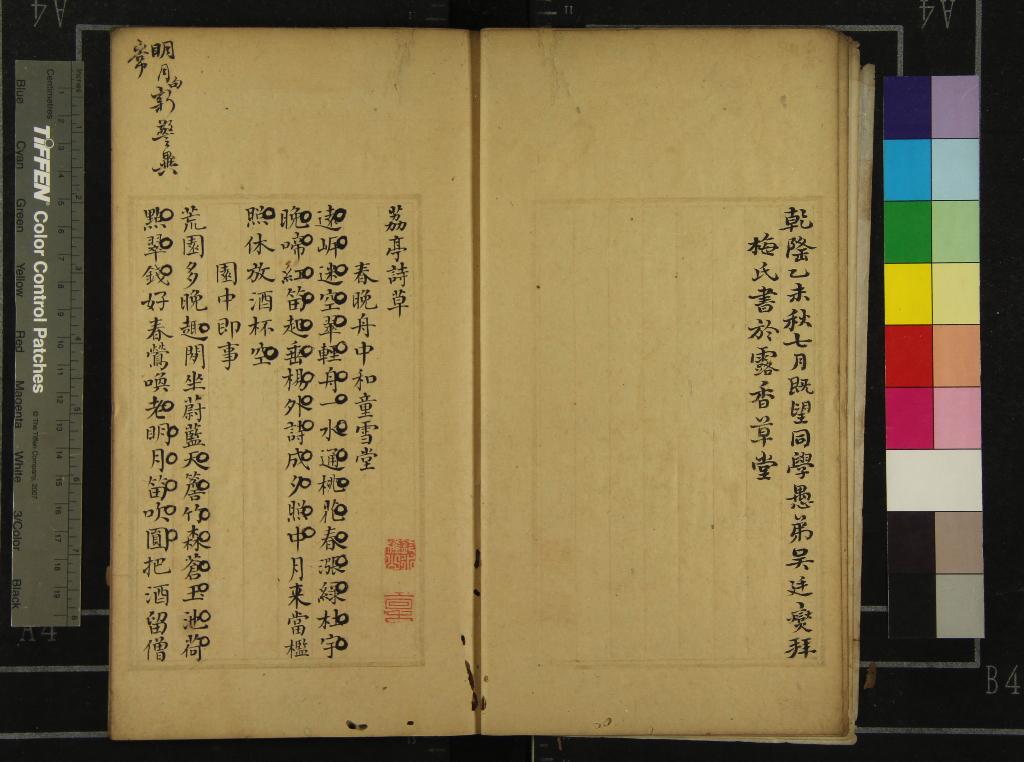 乾隆乙未秋七月既望同學愚弟吴廷燮拜
梅氏書於露香草堂
荔亭詩草
春晚舟中和童雪堂
遠岫迷空翠輕舟一水通桃花春漲綠杜宇
晚啼紅笛起垂楊外詩成夕照中月来當檻
照休放酒杯空
園中即事
荒園多晚趣閒坐蔚藍天簷竹森蒼玉池荷
點翠錢好春鶯喚老明月笛吹圓把酒留僧
明月句新警異
常
TIFFEN Color Control Patches
© The Tiffen Company, 2007
Inches
Centimetres
Blue
Cyan
Green
Yellow
Red
Magenta
White
3/Color
Black
A4
A4
A4
B4